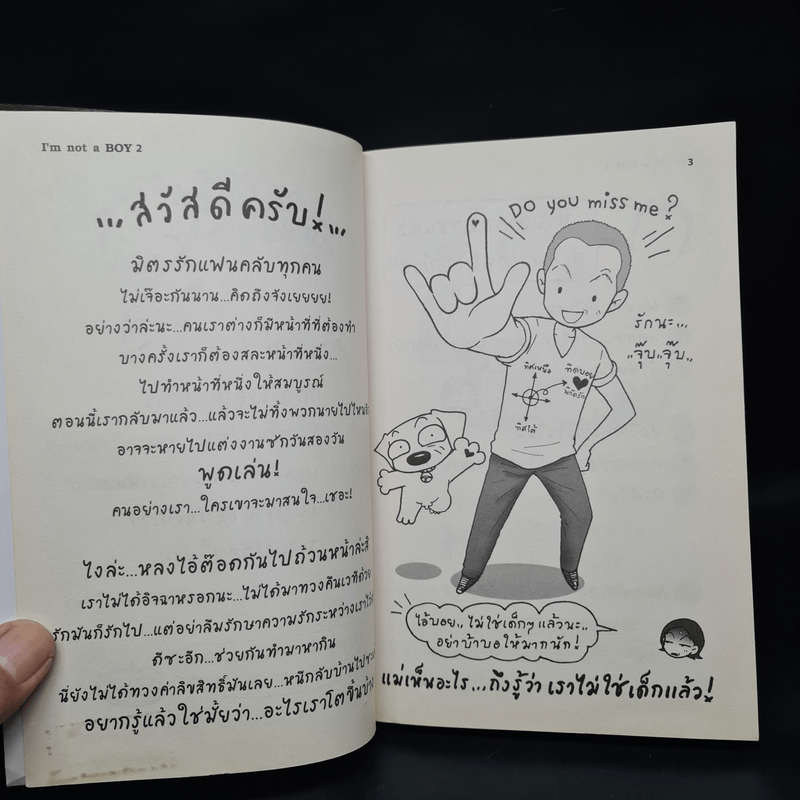 I'm not a BOY 2
...สวัสดีครับ!...
มิตรรักแฟนคลับทุกคน
ไม่เจ๊อะกันนาน...คิดถึงจังเยยยย!
อย่างว่าล่ะนะ...คนเราต่างก็มีหน้าที่ที่ต้องทำ
บางครั้งเราก็ต้องสละหน้าที่หนึ่ง...
ไปทำหน้าที่หนึ่งให้สมบูรณ์
ตอนนี้เรากลับมาแล้ว...แล้วจะไม่ทิ้งพวกนายไปไหน
อาจจะหายไปแต่งงานซักวันสองวัน
พูดเล่น!
คนอย่างเรา...ใครเขาจะมาสนใจ...เชอะ!
ไงล่ะ...หลงไอ้ต๊อดกันไปถ้วนหน้าล่ะสิ
เราไม่ได้อิจฉาหรอกนะ...ไม่ได้มาทวงคืนเวทีด้วย
รักมันก็รักไป...แต่อย่าลืมรักษาความรักระหว่างเรา
ดีซะอีก...ช่วยกันทำมาหากิน
นี่ยังไม่ได้ทวงค่าลิขสิทธิ์มันเลย...หนีกลับบ้านไป
อยากรู้แล้วใช่มั้ยว่า...อะไรเราโตขึ้นบ้าง
3
Do you miss me?
รักนะ...
..จุ๊บ..จุ๊บ..
ทิศเหนือ
ทิดบอย
พิกัดรัก
ทิศใต้
ไอ้บอย..ไม่ใช่เด็กๆ แล้วนะ..
อย่าบ้าบอให้มากนัก!
แม่เห็นอะไร...ถึงรู้ว่า เราไม่ใช่เด็กแล้ว!